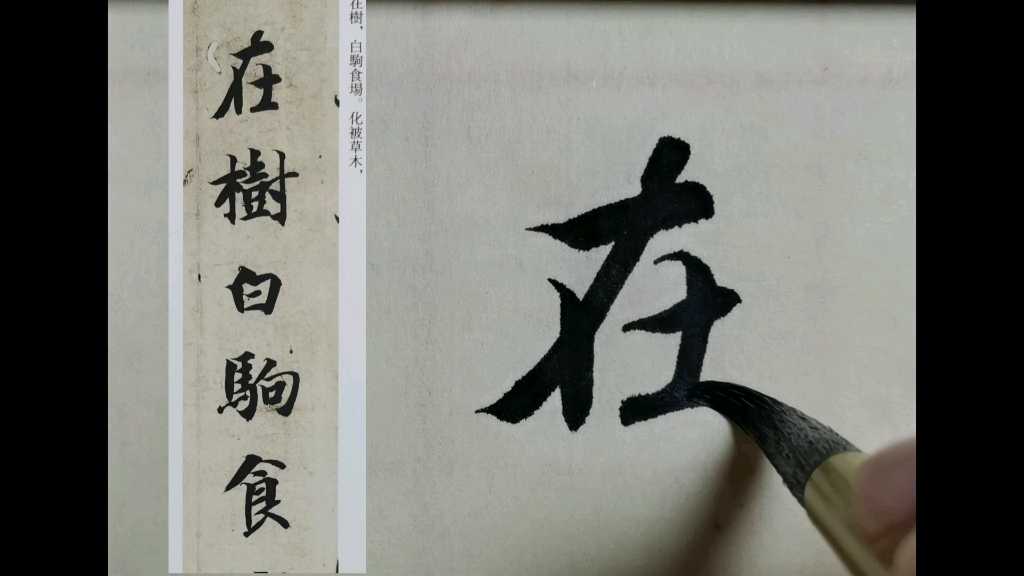 在樹，白駒食場。化被草木，
在樹白駒食
在